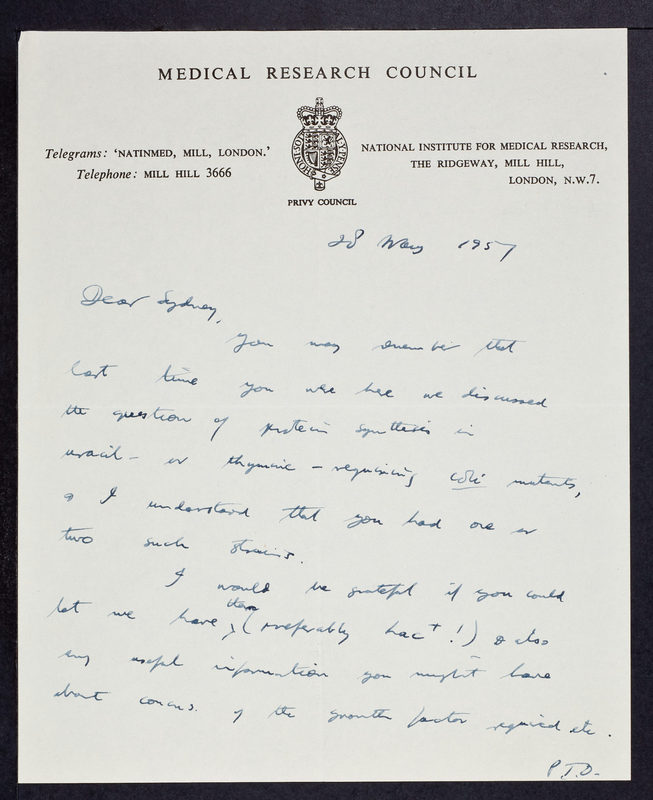 MEDICAL RESEARCH COUNCIL
Telegrams: 'NATINMED, MILL, LONDON.'
Telephone: MILL HILL 3666
PRIVY COUNCIL
NATIONAL INSTITUTE FOR MEDICAL RESEARCH,
THE RIDGEWAY, MILL HILL,
LONDON, N.W.7.
28 May 1957
Dear Sydney,
You may remember that
last time you were here we discussed
the question of protein synthesis in
uracil- or thymine-requiring coli mutants,
& I understand that you had one or
two such strains.
I would be grateful if you could
let me have them (preferably lac+!) & also
any useful information you might have
about concns. of the growth factor required etc.
P.T.O.